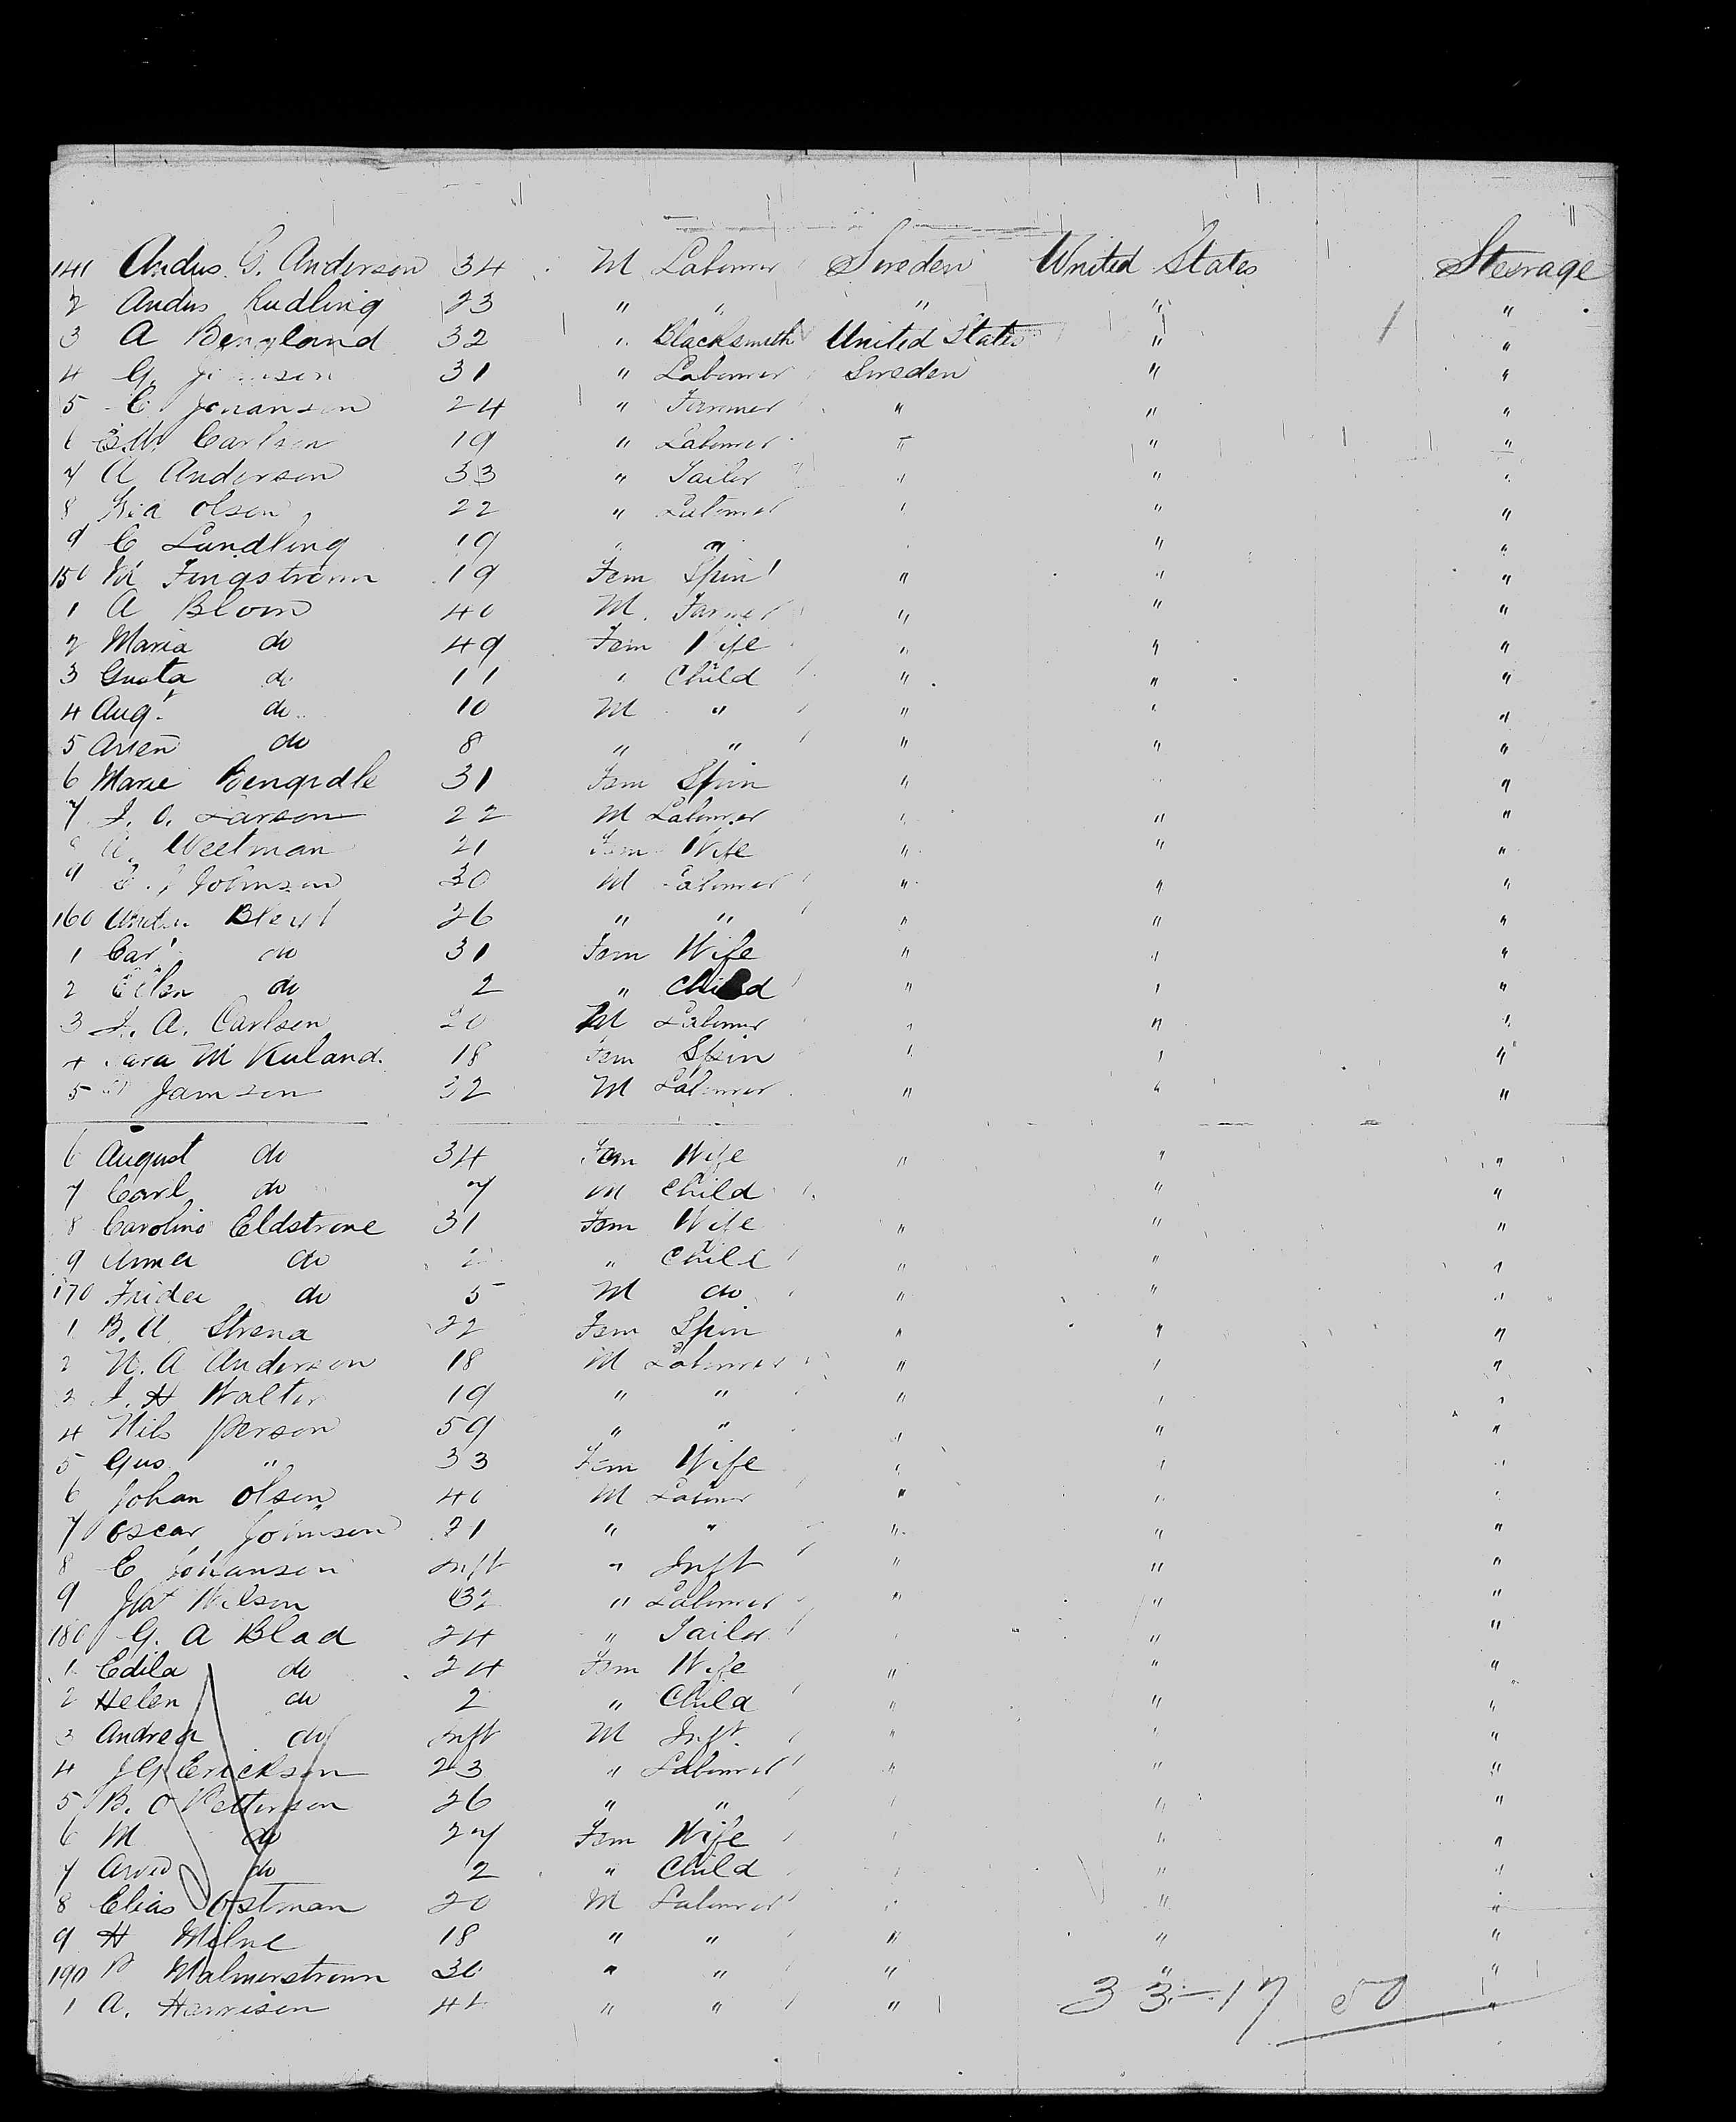 141 Andus G. Anderson 34 M Labourer Sweden United States Steerage
2 Andus Rudling 23 " " " " "
3 A Bengland 32 " Blacksmith United States " 1 "
4 G. 31 " Labourer Sweden " "
5 C Johanson 24 " Farmer " " "
6 E.W. Carlson 19 " Labourer " " "
7 A Anderson 33 " Tailor " " "
8 Olson 22 " Labourer " " "
9 C Lundling 19 " " " "
150 M Fingstrom 19 Fem Spin " " "
1 A Blom 40 M Farmer " " "
2 Maria do 49 Fem Wife " " "
3 Gusta do 11 " Child " " "
4 Aug. do 10 M " " " "
5 do 8 " " " " "
6 Marie 31 Fem Spin " "
7 J. O. Larson 22 M Labourer " " "
8 A. Weetman 21 Fem Wife " " "
9 Johnson 30 M Labourer " " "
160 26 " " " " "
1 Car do 31 Fem Wife " " "
2 Ellen do 2 " Child " " "
3 J. A. Carlson 20 M Labourer " " "
4 Sara M Kuland 18 Fem Spin " " "
5 Jamson 32 M Labourer " " "
6 August do 34 Fem Wife " " "
7 Carl do 7 M Child " " "
8 Caroline Eldstrone 31 Fem Wife " " "
9 Anna do 2 " Child " " "
170 Frider do 5 M do " " "
1 B. A. Strena 22 Fem Spin " " "
2 N. A Anderson 18 M Labourer " " "
3 J. H Walter 19 " " " " "
4 Nils Person 59 " " " " "
5 Gus " 33 Fem Wife " " "
6 Johan Olson 40 M Labourer " " "
7 Oscar Johnson 21 " " " " "
8 C Johanson Inft " Inft " " "
9 Nelson 32 " Labourer " " "
180 G. A Blad 24 " Tailor " "
1 Edila do 24 Fem Wife " " "
2 Helen do 2 " Child " " "
3 Andrea do Inft M Inft " "
4 J G Erickson 23 " Labourer " " "
5 B. O Petterson 26 " " " " "
6 M do 27 Fem Wife " " "
7 do 2 " Child " " "
8 Elias Ostman 20 M Labourer " " "
9 H Milne 18 " " " " "
190 P Malmerstrom 30 " " " " "
1 A. Harrison 42 " " " 33-17 50 "